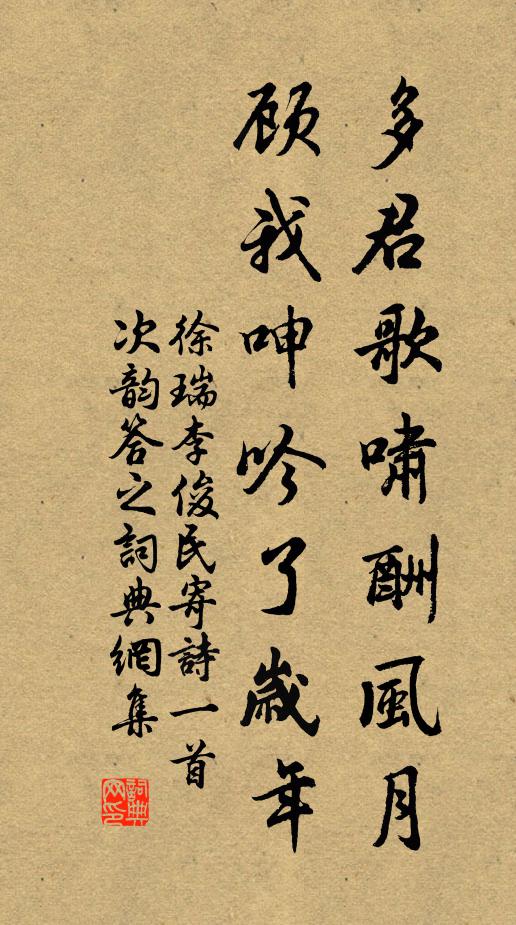 多君歌啸酬風月
顾我呻吟了歲年
徐瑞李俊民寄詩一首
次韵答之詞典網集
詞典
网印